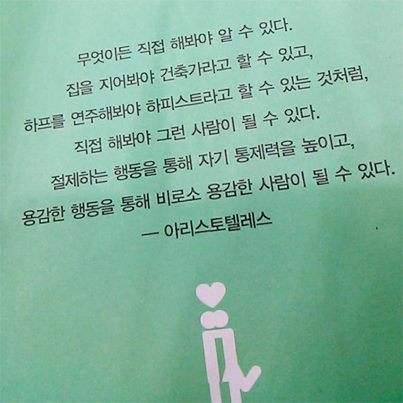 무엇이든 직접 해봐야 알 수 있다.
집을 지어봐야 건축가라고 할 수 있고,
하프를 연주해봐야 하피스트라고 할 수 있는 것처럼,
직접 해봐야 그런 사람이 될 수 있다.
절제하는 행동을 통해 자기 통제력을 높이고,
용감한 행동을 통해 비로소 용감한 사람이 될 수 있다.
— 아리스토텔레스